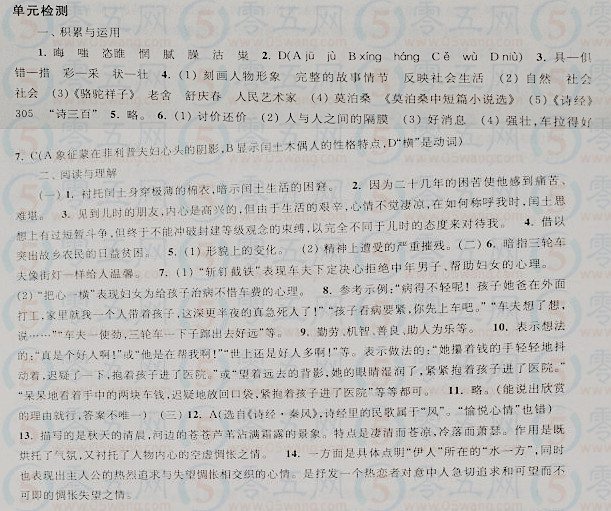 单元检测
一、积累与运用
1. 晦 嗤 恣睢 惘 腻 臊 沽 枭 2. D(A jū jù B xíng háng C ě wù D niù) 3. 具—俱
错—措 彩—采 状—壮 4. (1) 刻画人物形象 完整的故事情节 反映社会生活 (2) 自然 社会
社会 (3)《骆驼祥子》 老舍 舒庆春 人民艺术家 (4) 莫泊桑 《莫泊桑中短篇小说选》 (5)《诗经》
305 “诗三百” 5. 略。 6. (1) 讨价还价 (2) 人与人之间的隔膜 (3) 好消息 (4) 强壮,车拉得好
7. C(A象征蒙在菲利普夫妇心头的阴影,B显示闰土木偶人的性格特点,D“横”是动词)
二、阅读与理解
(一) 1. 衬托闰土身穿极薄的棉衣,暗示闰土生活的困窘。 2. 因为二十几年的困苦使他感到痛苦、
难堪。 3. 见到儿时的朋友,内心是高兴的,但由于生活的艰辛,心情不觉凄凉,在如何称呼我时,闰土思
想上有过短暂斗争,但终于不能冲破封建等级观念的束缚,以完全不同于儿时的态度来对待我。 4. 借以
突出故乡农民的日益贫困。 5. (1) 形貌上的变化。 (2) 精神上遭受的严重摧残。(二) 6. 暗指三轮车
夫像街灯一样给人温馨。 7. (1) “斩钉截铁”表现车夫下定决心拒绝中年男子、帮助妇女的心理。
(2) “把心一横”表现妇女为给孩子治病不惜车费的心理。 8. 参考示例:“病得不轻呢! 孩子她爸在外面
打工,家里就我一个人带着孩子,这深更半夜的真急死人了!”“孩子看病要紧,你先上车吧。”“车夫想了想,
说……”“车夫一使劲,三轮车一下子蹿出去好远”等。 9. 勤劳、机智、善良、助人为乐等。 10. 表示想法
的:“真是个好人啊!”或“他是在帮我啊!”“世上还是好人多啊!”等。表示做法的:“她攥着钱的手轻轻地抖
动着,迟疑了一下,抱着孩子进了医院。”或“望着远去的背影,她的眼睛湿润了,紧紧抱着孩子进了医院。”
“呆呆地看着手中的两块车钱,迟疑地放回口袋,紧抱着孩子进了医院”等等都可。 11. 略。(能说出欣赏
的理由就行,答案不唯一) (三) 12. A(选自《诗经·秦风》,诗经里的民歌属于“风”。“愉悦心情”也错)
13. 描写的是秋天的清晨,河边的苍苍芦苇沾满霜露的景象。特点是凄清而苍凉,冷落而萧瑟。作用是既
烘托了气氛,又衬托了人物内心的空虚惆怅之情。 14. 一方面是具体点明“伊人”所在的“水一方”,同时
也表现出主人公的热烈追求与失望惆怅相交织的心情。是抒发一个热恋者对意中人急切追求和可望而不
可即的惆怅失望之情。